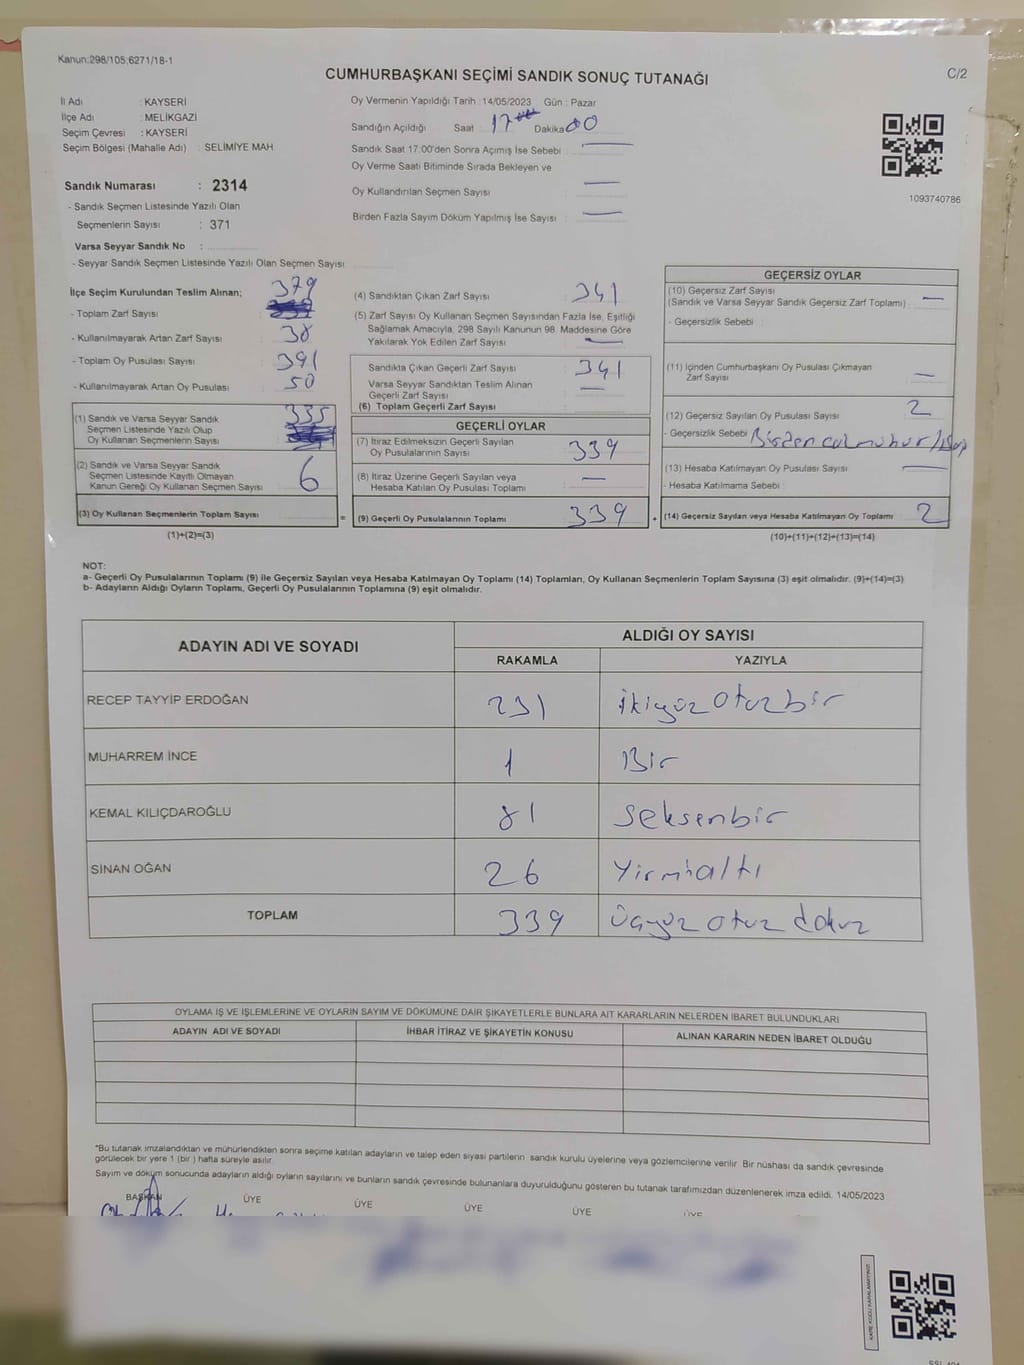 Kanun:298/105;6271/18-1
CUMHURBAŞKANI SEÇİMİ SANDIK SONUÇ TUTANAĞI
C/2
İl Adı : KAYSERİ
İlçe Adı : MELİKGAZİ
Seçim Çevresi : KAYSERİ
Seçim Bölgesi (Mahalle Adı) : SELİMİYE MAH.
Sandık Numarası : 2314
- Sandık Seçmen Listesinde Yazılı Olan
Seçmenlerin Sayısı : 371
Varsa Seyyar Sandık No :
- Seyyar Sandık Seçmen Listesinde Yazılı Olan Seçmen Sayısı:
Oy Vermenin Yapıldığı Tarih : 14/05/2023 Gün : Pazar
Sandığın Açıldığı Saat : 17 Dakika 00
Sandık Saat 17:00'den Sonra Açımış İse Sebebi :
Oy Verme Saati Bitiminde Sırada Bekleyen ve
Oy Kullandırılan Seçmen Sayısı :
Birden Fazla Sayım Döküm Yapılmış İse Sayısı :
1093740786
İlçe Seçim Kurulundan Teslim Alınan; 379
- Toplam Zarf Sayısı :
- Kullanılmayarak Artan Zarf Sayısı : 38
- Toplam Oy Pusulası Sayısı : 391
- Kullanılmayarak Artan Oy Pusulası : 50
(1) Sandık ve Varsa Seyyar Sandık
Seçmen Listesinde Yazılı Olup
Oy Kullanan Seçmenlerin Sayısı : 335
(2) Sandık ve Varsa Seyyar Sandık
Seçmen Listesinde Kayıtlı Olmayan
Kanun Gereği Oy Kullanan Seçmen Sayısı : 6
(3) Oy Kullanan Seçmenlerin Toplam Sayısı :
(1)+(2)=(3)
(4) Sandıktan Çıkan Zarf Sayısı : 341
(5) Zarf Sayısı Oy Kullanan Seçmen Sayısından Fazla İse, Eşitliği
Sağlamak Amacıyla, 298 Sayılı Kanunun 98. Maddesine Göre
Yakılarak Yok Edilen Zarf Sayısı : —
Sandıkta Çıkan Geçerli Zarf Sayısı : 341
Varsa Seyyar Sandıktan Teslim Alınan
Geçerli Zarf Sayısı : —
(6) Toplam Geçerli Zarf Sayısı :
GEÇERLİ OYLAR
(7) İtiraz Edilmeksizin Geçerli Sayılan
Oy Pusulalarının Sayısı : 339
(8) İtiraz Üzerine Geçerli Sayılan veya
Hesaba Katılan Oy Pusulası Toplamı : —
= (9) Geçerli Oy Pusulalarının Toplamı : 339
GEÇERSİZ OYLAR
(10) Geçersiz Zarf Sayısı
(Sandık ve Varsa Seyyar Sandık Geçersiz Zarf Toplamı) : —
- Geçersizlik Sebebi :
(11) İçinden Cumhurbaşkanı Oy Pusulası Çıkmayan
Zarf Sayısı : —
(12) Geçersiz Sayılan Oy Pusulası Sayısı : 2
- Geçersizlik Sebebi : Birden
(13) Hesaba Katılmayan Oy Pusulası Sayısı : —
- Hesaba Katılmama Sebebi :
+ (14) Geçersiz Sayılan veya Hesaba Katılmayan Oy Toplamı : 2
(10)+(11)+(12)+(13)=(14)
NOT:
a- Geçerli Oy Pusulalarının Toplamı (9) ile Geçersiz Sayılan veya Hesaba Katılmayan Oy Toplamı (14) Toplamları, Oy Kullanan Seçmenlerin Toplam Sayısına (3) eşit olmalıdır. (9)+(14)=(3)
b- Adayların Aldığı Oyların Toplamı, Geçerli Oy Pusulalarının Toplamına (9) eşit olmalıdır.
ADAYIN ADI VE SOYADI
ALDIĞI OY SAYISI
RAKAMLA YAZIYLA
RECEP TAYYİP ERDOĞAN 231 ikiyüz otuz bir
MUHARREM İNCE 1 Bir
KEMAL KILIÇDAROĞLU 81 Seksenbir
SİNAN OĞAN 26 Yirmialtı
TOPLAM 339 Üçyüz otuz dokuz
OYLAMA İŞ VE İŞLEMLERİNE VE OYLARIN SAYIM VE DÖKÜMÜNE DAİR ŞİKAYETLERLE BUNLARA AİT KARARLARIN NELERDEN İBARET BULUNDUKLARI
ADAYIN ADI VE SOYADI İHBAR İTİRAZ VE ŞİKAYETİN KONUSU ALINAN KARARIN NEDEN İBARET OLDUĞU
*Bu tutanak imzalandıktan ve mühürlendikten sonra seçime katılan adayların ve talep eden siyasi partilerin sandık kurulu üyelerine veya gözlemcilerine verilir. Bir nüshası da sandık çevresinde
görülecek bir yere 1 (bir) hafta süreyle asılır.
Sayım ve döküm sonucunda adayların aldığı oyların sayılarını ve bunların sandık çevresinde bulunanlara duyurulduğunu gösteren bu tutanak tarafımızdan düzenlenerek imza edildi. 14/05/2023
BAŞKAN ÜYE ÜYE ÜYE ÜYE ÜYE